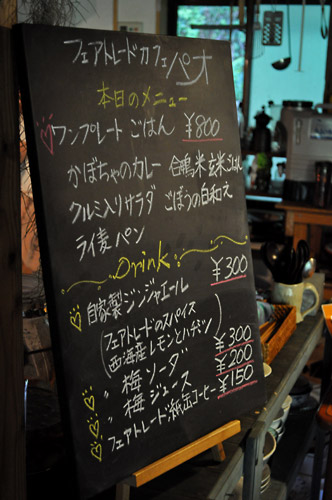 フェアトレードカフェ パオ
本日のメニュー
ワンプレートごはん ¥800
かぼちゃのカレー 合鴨米玄米ごはん
クルミ入りサラダ ごぼうの白和え
ライ麦パン
Drink
自家製ジンジャエール ¥300
(フェアトレードのスパイス
西海産レモンとハチミツ)
〃 梅ソーダ ¥300
〃 梅ジュース ¥200
フェアトレード紙缶コーヒー ¥150